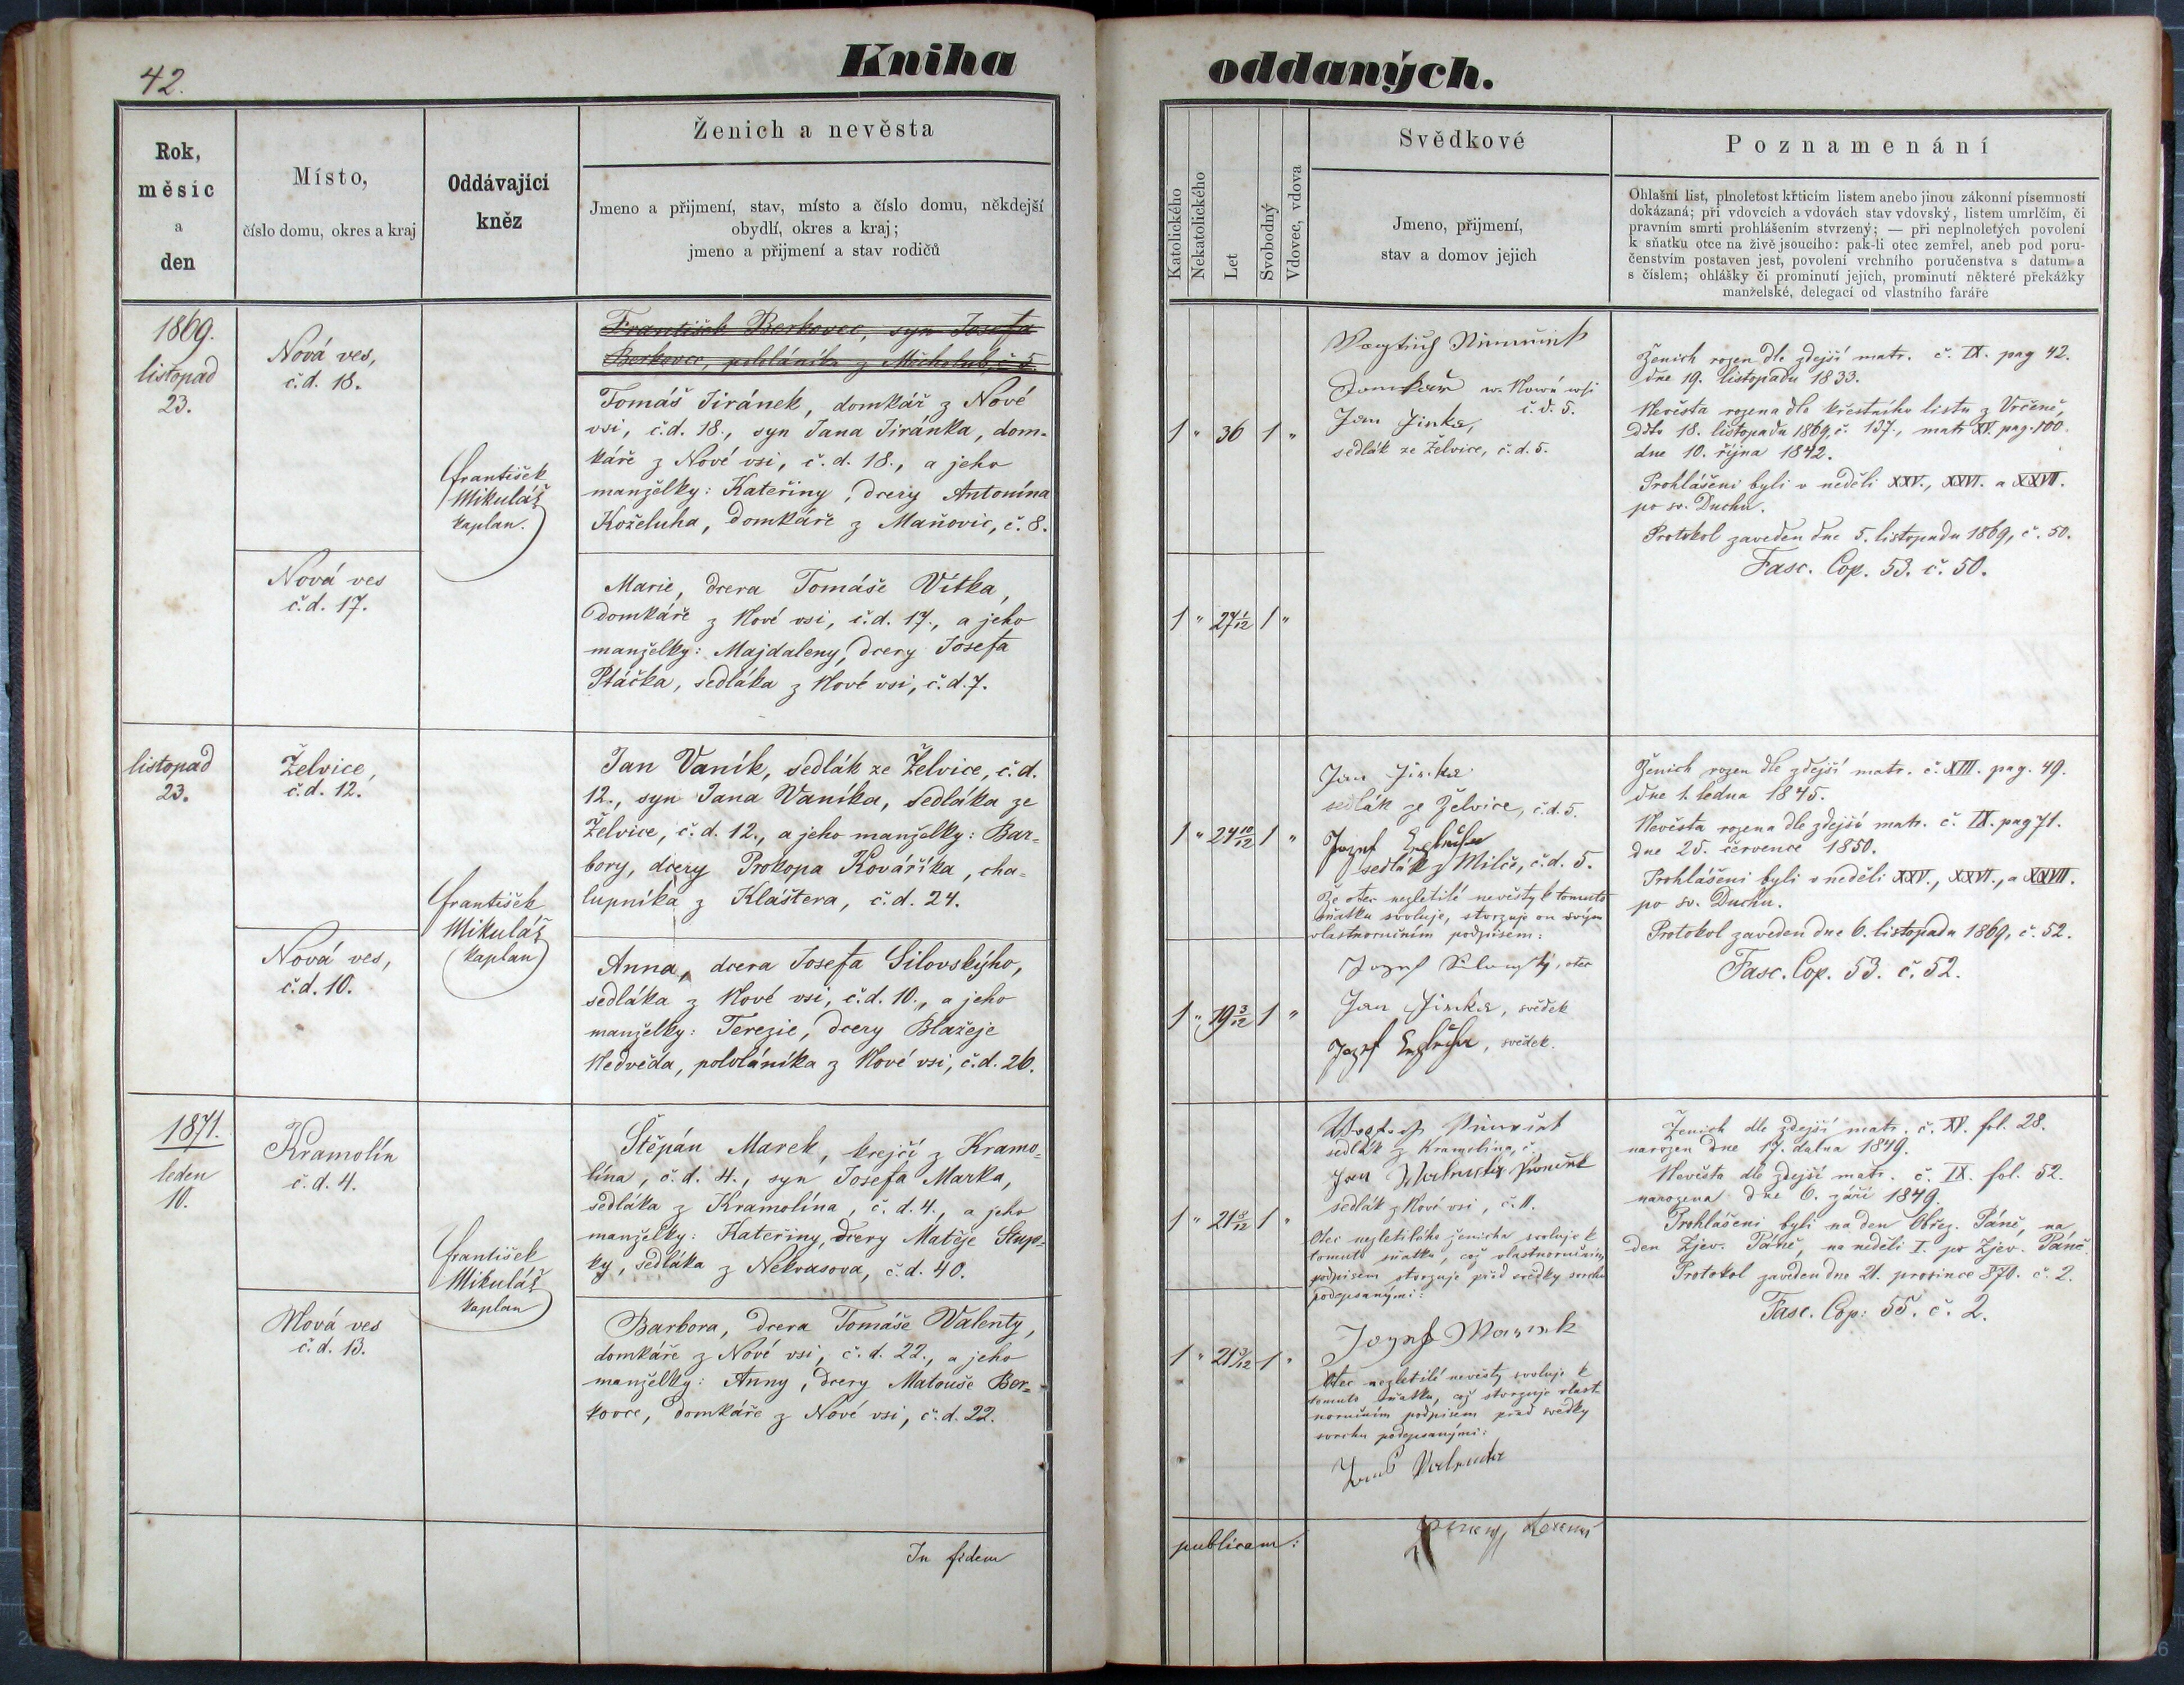 42.
Kniha
oddaných.
Rok,
měsíc
a
den
Místo,
číslo domu, okres a kraj
Oddávající
kněz
Ženich a nevěsta
Jmeno a přijmení, stav, místo a číslo domu, někdejší
obydlí, okres a kraj;
jmeno a přijmení a stav rodičů
Katolického
Nekatolického
Let
Svobodný
Vdovec, vdova
Svědkové
Jmeno, přijmení,
stav a domov jejich
Poznamenání
Ohlašní list, plnoletost křticím listem anebo jinou zákonní písemností
dokázaná; při vdovcích a vdovách stav vdovský, listem umrlčím, či
pravním smrti prohlášením stvrzený; — při neplnoletých povolení
k sňatku otce na živě jsoucího: pak-li otec zemřel, aneb pod poru-
čenstvím postaven jest, povolení vrchního poručenstva s datum a
s číslem; ohlášky či prominutí jejich, prominutí některé překážky
manželské, delegací od vlastního faráře
1869.
listopad
23.
Nová ves,
č.d. 18.
František
Mikuláš
kaplan.
František Berkovec, syn Josefa
Berkovce, pololáníka z Měcholub, č. 5
Tomáš Jiránek, domkář z Nové
vsi, č.d. 18., syn Jana Jiránka, dom-
káře z Nové vsi, č.d. 18., a jeho
manželky: Kateřiny, dcery Antonína
Koželuha, domkáře z Maňovic, č. 8.
1 " 36 1 "
domkář w Nowé wsi
č.d. 5.
Jan Jinka,
sedlák ze Želvice, č.d. 5.
Ženich rozen dle zdejší matr. č. IX. pag 42.
dne 19. listopadu 1833.
Nevěsta rozena dle křestního listu z Vrčeně,
ddto 18. listopadu 1869, č. 137., matr XV. pag. 100.
dne 10. října 1842.
Prohlášeni byli v neděli XXV., XXVI. a XXVII.
po sv. Duchu.
Protokol zaveden dne 5. listopadu 1869, č. 50.
Fasc. Cop. 53. č. 50.
Nová ves
č.d. 17.
Marie, dcera Tomáše Vítka,
domkáře z Nové vsi, č.d. 17., a jeho
manželky: Majdaleny, dcery Josefa
Ptáčka, sedláka z Nové vsi, č.d. 7.
1 " 27 1/12 1 "
listopad
23.
Želvice,
č.d. 12.
František
Mikuláš
kaplan
Jan Vaník, sedlák ze Želvice, č.d.
12., syn Jana Vaníka, sedláka ze
Želvice, č.d. 12., a jeho manželky: Bar-
bory, dcery Prokopa Kováříka, cha-
lupníka z Kláštera, č.d. 24.
1 " 24 10/12 1 "
Jan Jinka
sedlák ze Želvice, č.d. 5.
Jozef
sedlák z Milče, č.d. 5.
Že otec nezletilé nevěsty k tomuto
sňatku svoluje, stvrzuje on svým
vlastnoručním podpisem:
Ženich rozen dle zdejší matr. č. XIII. pag. 49.
dne 1. ledna 1845.
Nevěsta rozena dle zdejší matr. č. IX. pag 71.
dne 25. července 1850.
Prohlášeni byli v neděli XXV., XXVI., a XXVII.
po sv. Duchu.
Protokol zaveden dne 6. listopadu 1869, č. 52.
Fasc. Cop. 53. č. 52.
Nová ves,
č.d. 10.
Anna, dcera Josefa Silovskýho,
sedláka z Nové vsi, č.d. 10., a jeho
manželky: Terezie, dcery Blažeje
Nedvěda, pololáníka z Nové vsi, č.d. 26.
1 " 19 3/12 1 "
Jozef Silowský, otec
Jan Jinka, svědek
Jozef, svědek.
1871.
leden
10.
Kramolín
č.d. 4.
František
Mikuláš
kaplan
Štěpán Marek, krejčí z Kramo-
lína, č.d. 4., syn Josefa Marka,
sedláka z Kramolína, č.d. 4., a jeho
manželky: Kateřiny, dcery Matěje Stup-
ky, sedláka z Nekvasova, č.d. 40.
1 " 21 8/12 1 "
sedlák z Kramolína, č.
Jan
sedlák z Nové vsi, č. 11.
Otec nezletilého ženicha svoluje k
tomuto sňatku, což vlastnoručním
podpisem stvrzuje před svědky svrchu
podepsanými:
Jozef Marek
Ženich dle zdejší matr. č. XV. fol. 28.
narozen dne 17. dubna 1849.
Nevěsta dle zdejší matr. č. IX. fol. 52.
narozena dne 6. září 1849.
Prohlášeni byli na den Obřez. Páně, na
den Zjev. Páně, na neděli I. po Zjev. Páně.
Protokol zaveden dne 21. prosince 870. č. 2.
Fasc. Cop: 55. č. 2.
Nová ves
č.d. 13.
Barbora, dcera Tomáše Valenty,
domkáře z Nové vsi, č.d. 22., a jeho
manželky: Anny, dcery Matouše Ber-
kovce, domkáře z Nové vsi, č.d. 22.
1 " 21 3/12 1 "
Otec nezletilé nevěsty svoluje k
tomuto sňatku, což stvrzuje vlast-
noručním podpisem před svědky
svrchu podepsanými:
Valenta
In fidem
publicam: